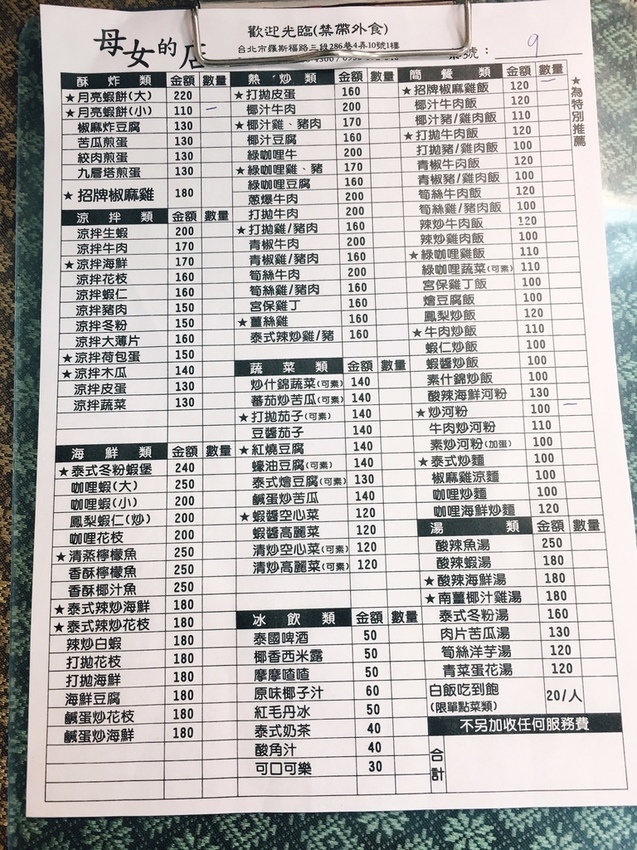 歡迎光臨(禁帶外食)
母女的店
台北市羅斯福路三段286巷4弄10號1樓
號： 9
酥炸類 金額 數量
★月亮蝦餅(大) 220
★月亮蝦餅(小) 110 一
椒麻炸豆腐 130
苦瓜煎蛋 130
絞肉煎蛋 130
九層塔煎蛋 130
★招牌椒麻雞 180
涼拌類 金額 數量
涼拌生蝦 200
涼拌牛肉 170
★涼拌海鮮 170
涼拌花枝 160
涼拌蝦仁 160
涼拌豬肉 150
涼拌冬粉 150
涼拌大薄片 160
★涼拌荷包蛋 150
★涼拌木瓜 140
涼拌皮蛋 130
涼拌蔬菜 130
海鮮類 金額 數量
★泰式冬粉蝦堡 240
咖哩蝦(大) 250
咖哩蝦(小) 200
鳳梨蝦仁(炒) 200
咖哩花枝 200
★清蒸檸檬魚 250
香酥檸檬魚 250
香酥椰汁魚 250
★泰式辣炒海鮮 180
★泰式辣炒花枝 180
辣炒白蝦 180
打拋花枝 180
打拋海鮮 180
海鮮豆腐 180
鹹蛋炒花枝 180
鹹蛋炒海鮮 180
熱炒類 金額 數量
★打拋皮蛋 160
椰汁牛肉 200
★椰汁雞、豬肉 170
椰汁豆腐 160
綠咖哩牛 200
★綠咖哩雞、豬 170
綠咖哩豆腐 160
蔥爆牛肉 200
打拋牛肉 200
★打拋雞/豬肉 160
青椒牛肉 200
青椒雞/豬肉 160
筍絲牛肉 200
筍絲雞/豬肉 160
宮保雞丁 160
★薑絲雞 160
泰式辣炒雞/豬 160
蔬菜類 金額 數量
炒什錦蔬菜(可素) 140
蕃茄炒苦瓜(可素) 140
★打拋茄子(可素) 140
豆醬茄子 140
★紅燒豆腐 140
蠔油豆腐(可素) 140
泰式燴豆腐(可素) 130
鹹蛋炒苦瓜 140
★蝦醬空心菜 120
蝦醬高麗菜 120
清炒空心菜(可素) 120
清炒高麗菜(可素) 120
冰飲類 金額 數量
泰國啤酒 50
椰香西米露 50
摩摩喳喳 50
原味椰子汁 60
紅毛丹冰 50
泰式奶茶 40
酸角汁 40
可口可樂 30
簡餐類 金額 數量
★招牌椒麻雞飯 120 一
椰汁牛肉飯 120
椰汁豬/雞肉飯 110
★打拋牛肉飯 120
打拋豬/雞肉飯 100
青椒牛肉飯 120
青椒豬/雞肉飯 100
筍絲牛肉飯 120
筍絲雞/豬肉飯 100
辣炒牛肉飯 120
辣炒雞肉飯 100
★綠咖哩雞飯 110
綠咖哩蔬菜(可素) 110
宮保雞丁飯 100
燴豆腐飯 100
鳳梨炒飯 120
★牛肉炒飯 110
蝦仁炒飯 100
蝦醬炒飯 100
素什錦炒飯 100
酸辣海鮮河粉 130
★炒河粉 100 一
牛肉炒河粉 110
素炒河粉(加蛋) 100
★泰式炒麵 100
椒麻雞涼麵 100
咖哩炒麵 100
咖哩海鮮炒麵 120
湯類 金額 數量
酸辣魚湯 250
酸辣蝦湯 180
★酸辣海鮮湯 180
★南薑椰汁雞湯 180
泰式冬粉湯 160
肉片苦瓜湯 130
筍絲洋芋湯 120
青菜蛋花湯 120
白飯吃到飽
(限單點菜類) 20/人
不另加收任何服務費
合計
★為特別推薦